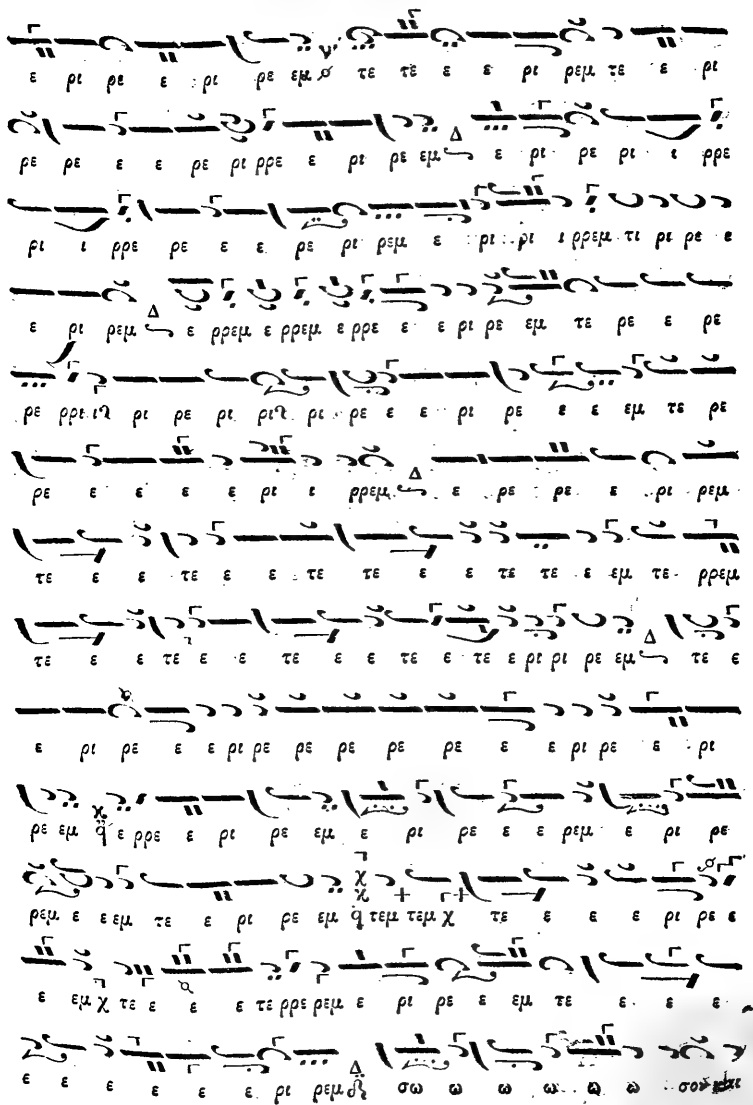 ε ρι ρε ε ρι ρε εμ τε τε ε ε ρι ρεμ τε ε ρι
ρε ρε ε ε ρε ρι ρρε ε ρι ρε εμ ε ρι ρε ρι ι ρρε
ρι ι ρρε ρε ε ε ρε ρι ρεμ ε ρι ρι ι ρρεμ τι ρι ρε ε
ε ρι ρεμ ε ρρεμ ε ρρεμ ε ρρε ε ε ρι ρε εμ τε ρε ε ρε
ρε ρρι ρι ρε ρι ρι ρι ρε ε ε ρι ρε ε ε εμ τε ρε
ρε ε ε ε ε ρι ι ρρεμ ε ρε ρε ε ρι ρεμ
τε ε ε τε ε ε τε τε ε ε τε τε ε εμ τε ρρεμ
τε ε ε τε ε ε τε ε ε τε ε τε ε ρι ρι ρε εμ τε ε
ε ρι ρε ε ε ρι ρε ρε ρε ρε ρε ε ε ρι ρε ε ρι
ρε εμ ε ρρε ε ρι ρε εμ ε ρι ρε ε ε ρεμ ε ρι ρε
ρεμ ε ε εμ τε ε ρι ρε εμ τεμ τεμ χ τε ε ε ε ε ρι ρε ε
ε εμ χ τε ε ε ε τε ρρε ρεμ ε ρι ρε ε εμ τε ε ε ε
ε ε ε ε ε ε ρι ρεμ σω ω ω ω ω ω